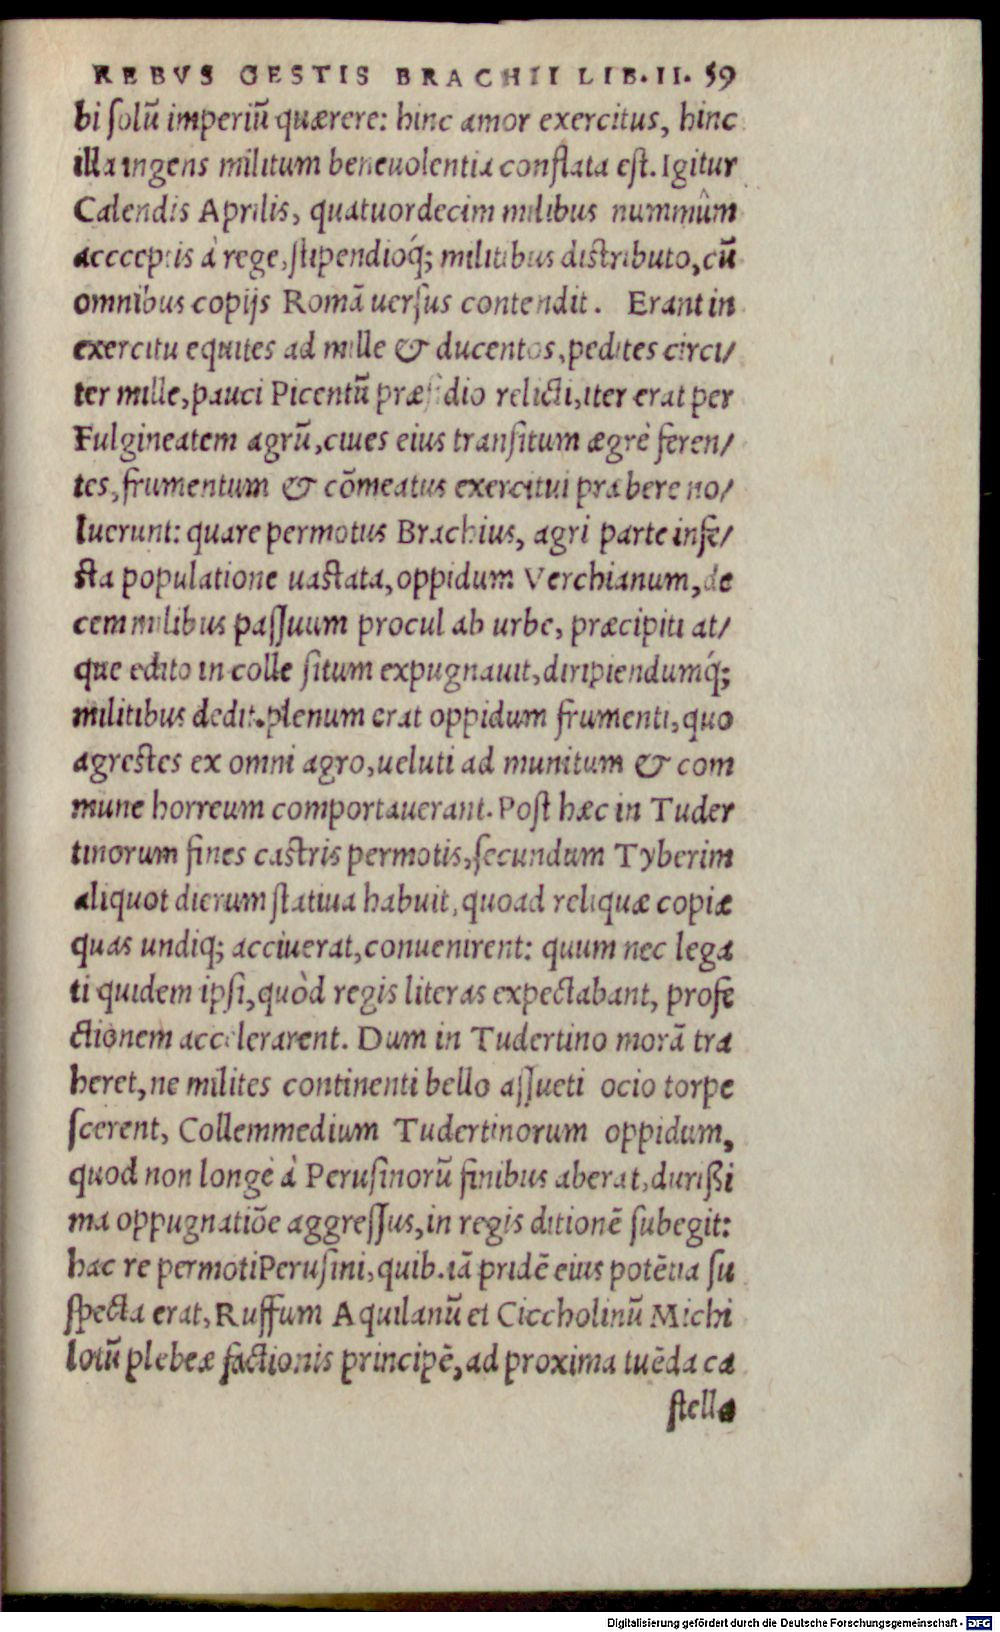 REBVS GESTIS BRACHII LIB.II. 59
bi ſolũ imperiũ quærere: hinc amor exercitus, hinc
illa ingens militum beneuolentia conflata eſt. Igitur
Calendis Aprilis, quatuordecim milibus nummûm
accceptis à rege, ſtipendioq́; militibus distributo, cũ
omnibus copijs Romã uerſus contendit. Erant in
exercitu equites ad mille & ducentos, pedites circi/
ter mille, pauci Picentũ præſidio relicti, iter erat per
Fulgineatem agrũ, ciues eius tranſitum ægrè feren/
tes, frumentum & cõmeatus exercitui præbere no/
luerunt: quare permotus Brachius, agri parte infe/
sta populatione uastata, oppidum Verchianum, de
cem milibus paſſuum procul ab urbe, præcipiti at/
que edito in colle ſitum expugnauit, diripiendumq́;
militibus dedit. plenum erat oppidum frumenti, quo
agrestes ex omni agro, ueluti ad munitum & com
mune horreum comportauerant. Poſt hæc in Tuder
tinorum fines castris permotis, ſecundum Tyberim
aliquot dierum ſtatiua habuit, quoad reliquæ copiæ
quas undiq; acciuerat, conuenirent: quum nec lega
ti quidem ipſi, quòd regis literas expectabant, profe
ctionem accelerarent. Dum in Tudertino morã tra
heret, ne milites continenti bello aſſueti ocio torpe
ſcerent, Collemmedium Tudertinorum oppidum,
quod non longè à Peruſinorũ finibus aberat, durißi
ma oppugnatiõe aggreſſus, in regis ditionẽ ſubegit:
hac re permoti Peruſini, quib. iã pridẽ eius potẽtia ſu
ſpecta erat, Ruffum Aquilanũ et Ciccholinũ Michi
lotũ plebeæ factionis principẽ, ad proxima tuẽda ca
ſtella
Digitalisierung gefördert durch die Deutsche Forschungsgemeinschaft - DFG